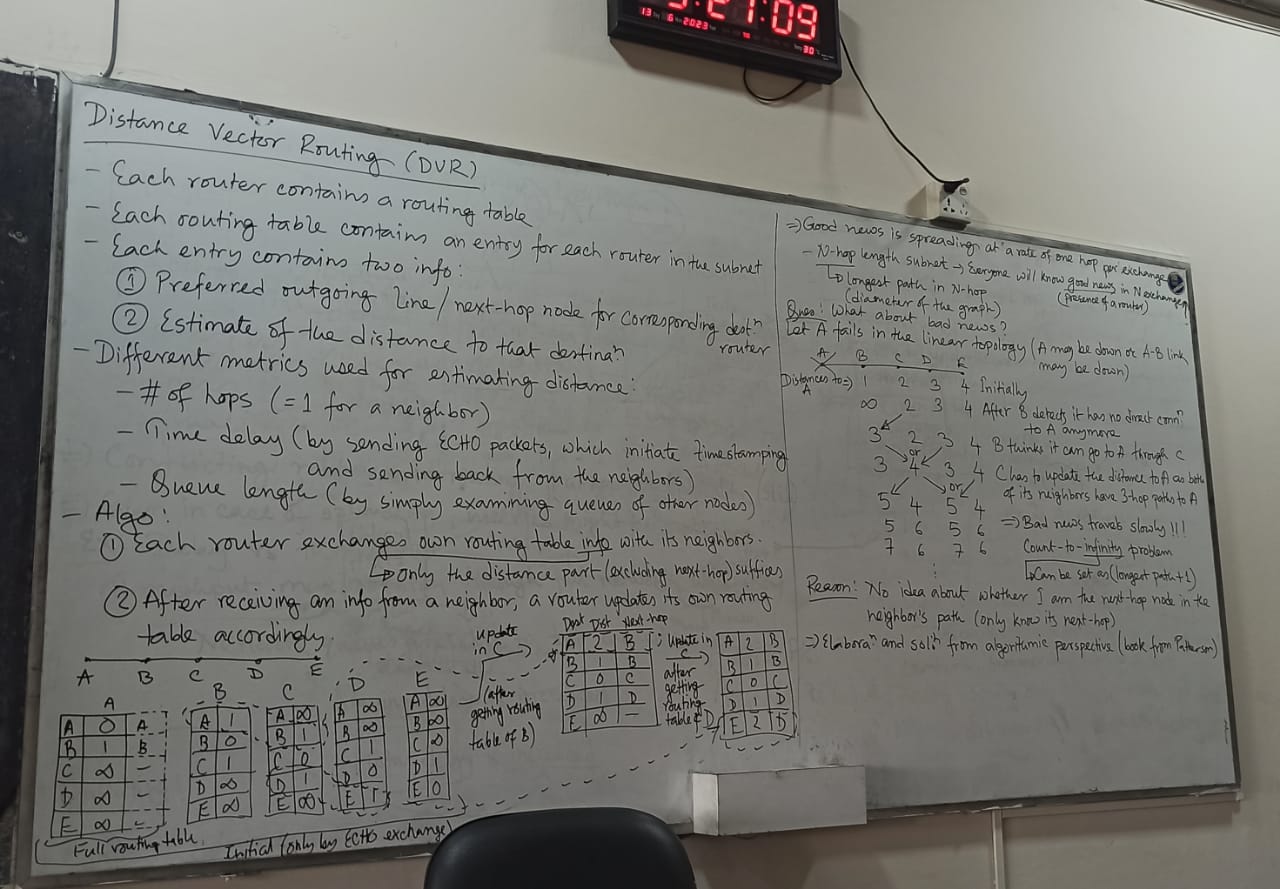 :21:09
13 6 2023
30
Distance Vector Routing (DVR)
- Each router contains a routing table
- Each routing table contains an entry for each router in the subnet
- Each entry contains two info:
① Preferred outgoing line/next-hop node for corresponding destⁿ router
② Estimate of the distance to that destinaⁿ
- Different metrics used for estimating distance:
- # of hops (=1 for a neighbor)
- Time delay (by sending ECHO packets, which initiate timestamping
and sending back from the neighbors)
- Queue length (by simply examining queues of other nodes)
- Algo:
① Each router exchanges own routing table info with its neighbors.
↳ Only the distance part (excluding next-hop) suffices
② After receiving an info from a neighbor, a router updates its own routing
table accordingly.
A B C D E
A
A 0 A
B 1 B
C ∞ -
D ∞ -
E ∞ -
Full routing table
B
A 1
B 0
C 1
D ∞
E ∞
C
A ∞
B 1
C 0
D 1
E ∞
D
A ∞
B ∞
C 1
D 0
E 1
E
A ∞
B ∞
C ∞
D 1
E 0
Initial (only by ECHO exchange)
update
in C
(after
getting routing
table of B)
Dest Dist Next-hop
A 2 B
B 1 B
C 0 C
D 1 D
E ∞ -
; Update in
C
after
getting
routing
table of D
A 2 B
B 1 B
C 0 C
D 1 D
E 2 D
⇒ Good news is spreading at a rate of one hop per exchange
- N-hop length subnet → Everyone will know good news in N exchanges
(presence of a router)
↳ longest path in N-hop
(diameter of the graph)
Ques: What about bad news?
Let A fails in the linear topology (A may be down or A-B link
may be down)
A B C D E
Distances to A ⇒ 1 2 3 4 Initially
∞ 2 3 4 After B detects it has no direct connⁿ
to A anymore
3 2 3 4 B thinks it can go to A through C
or
3 4 3 4 C has to update the distance to A as both
of its neighbors have 3-hop paths to A
or
5 4 5 4
5 6 5 6 ⇒ Bad news travels slowly!!!
7 6 7 6 Count-to-infinity problem
⋮
↳ Can be set as (longest path+1)
Reason: No idea about whether I am the next-hop node in the
neighbor's path (only know its next-hop)
⇒ Elaboraⁿ and solⁿ from algorithmic perspective (book from Patterson)